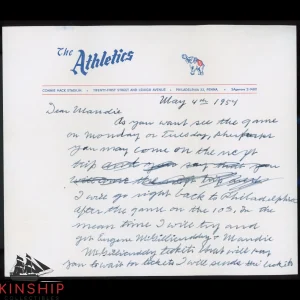 The Athletics
CONNIE MACK STADIUM • TWENTY-FIRST STREET AND LEHIGH AVENUE • PHILADELPHIA 32, PENNA.
May 4th 1954
Dear Maudie
As you want see the game
on Monday or Tuesday,
you may come on the next
trip and you say that you
I will go right back to Philadelphia
after the game on the 10th, in the
mean time I will try and
get Eugene McGillicuddy & Maudie
McGillicuddy tickets that will pay
you to wait for tickets I will sende the tickets
KINSHIP
COLLECTIBLES